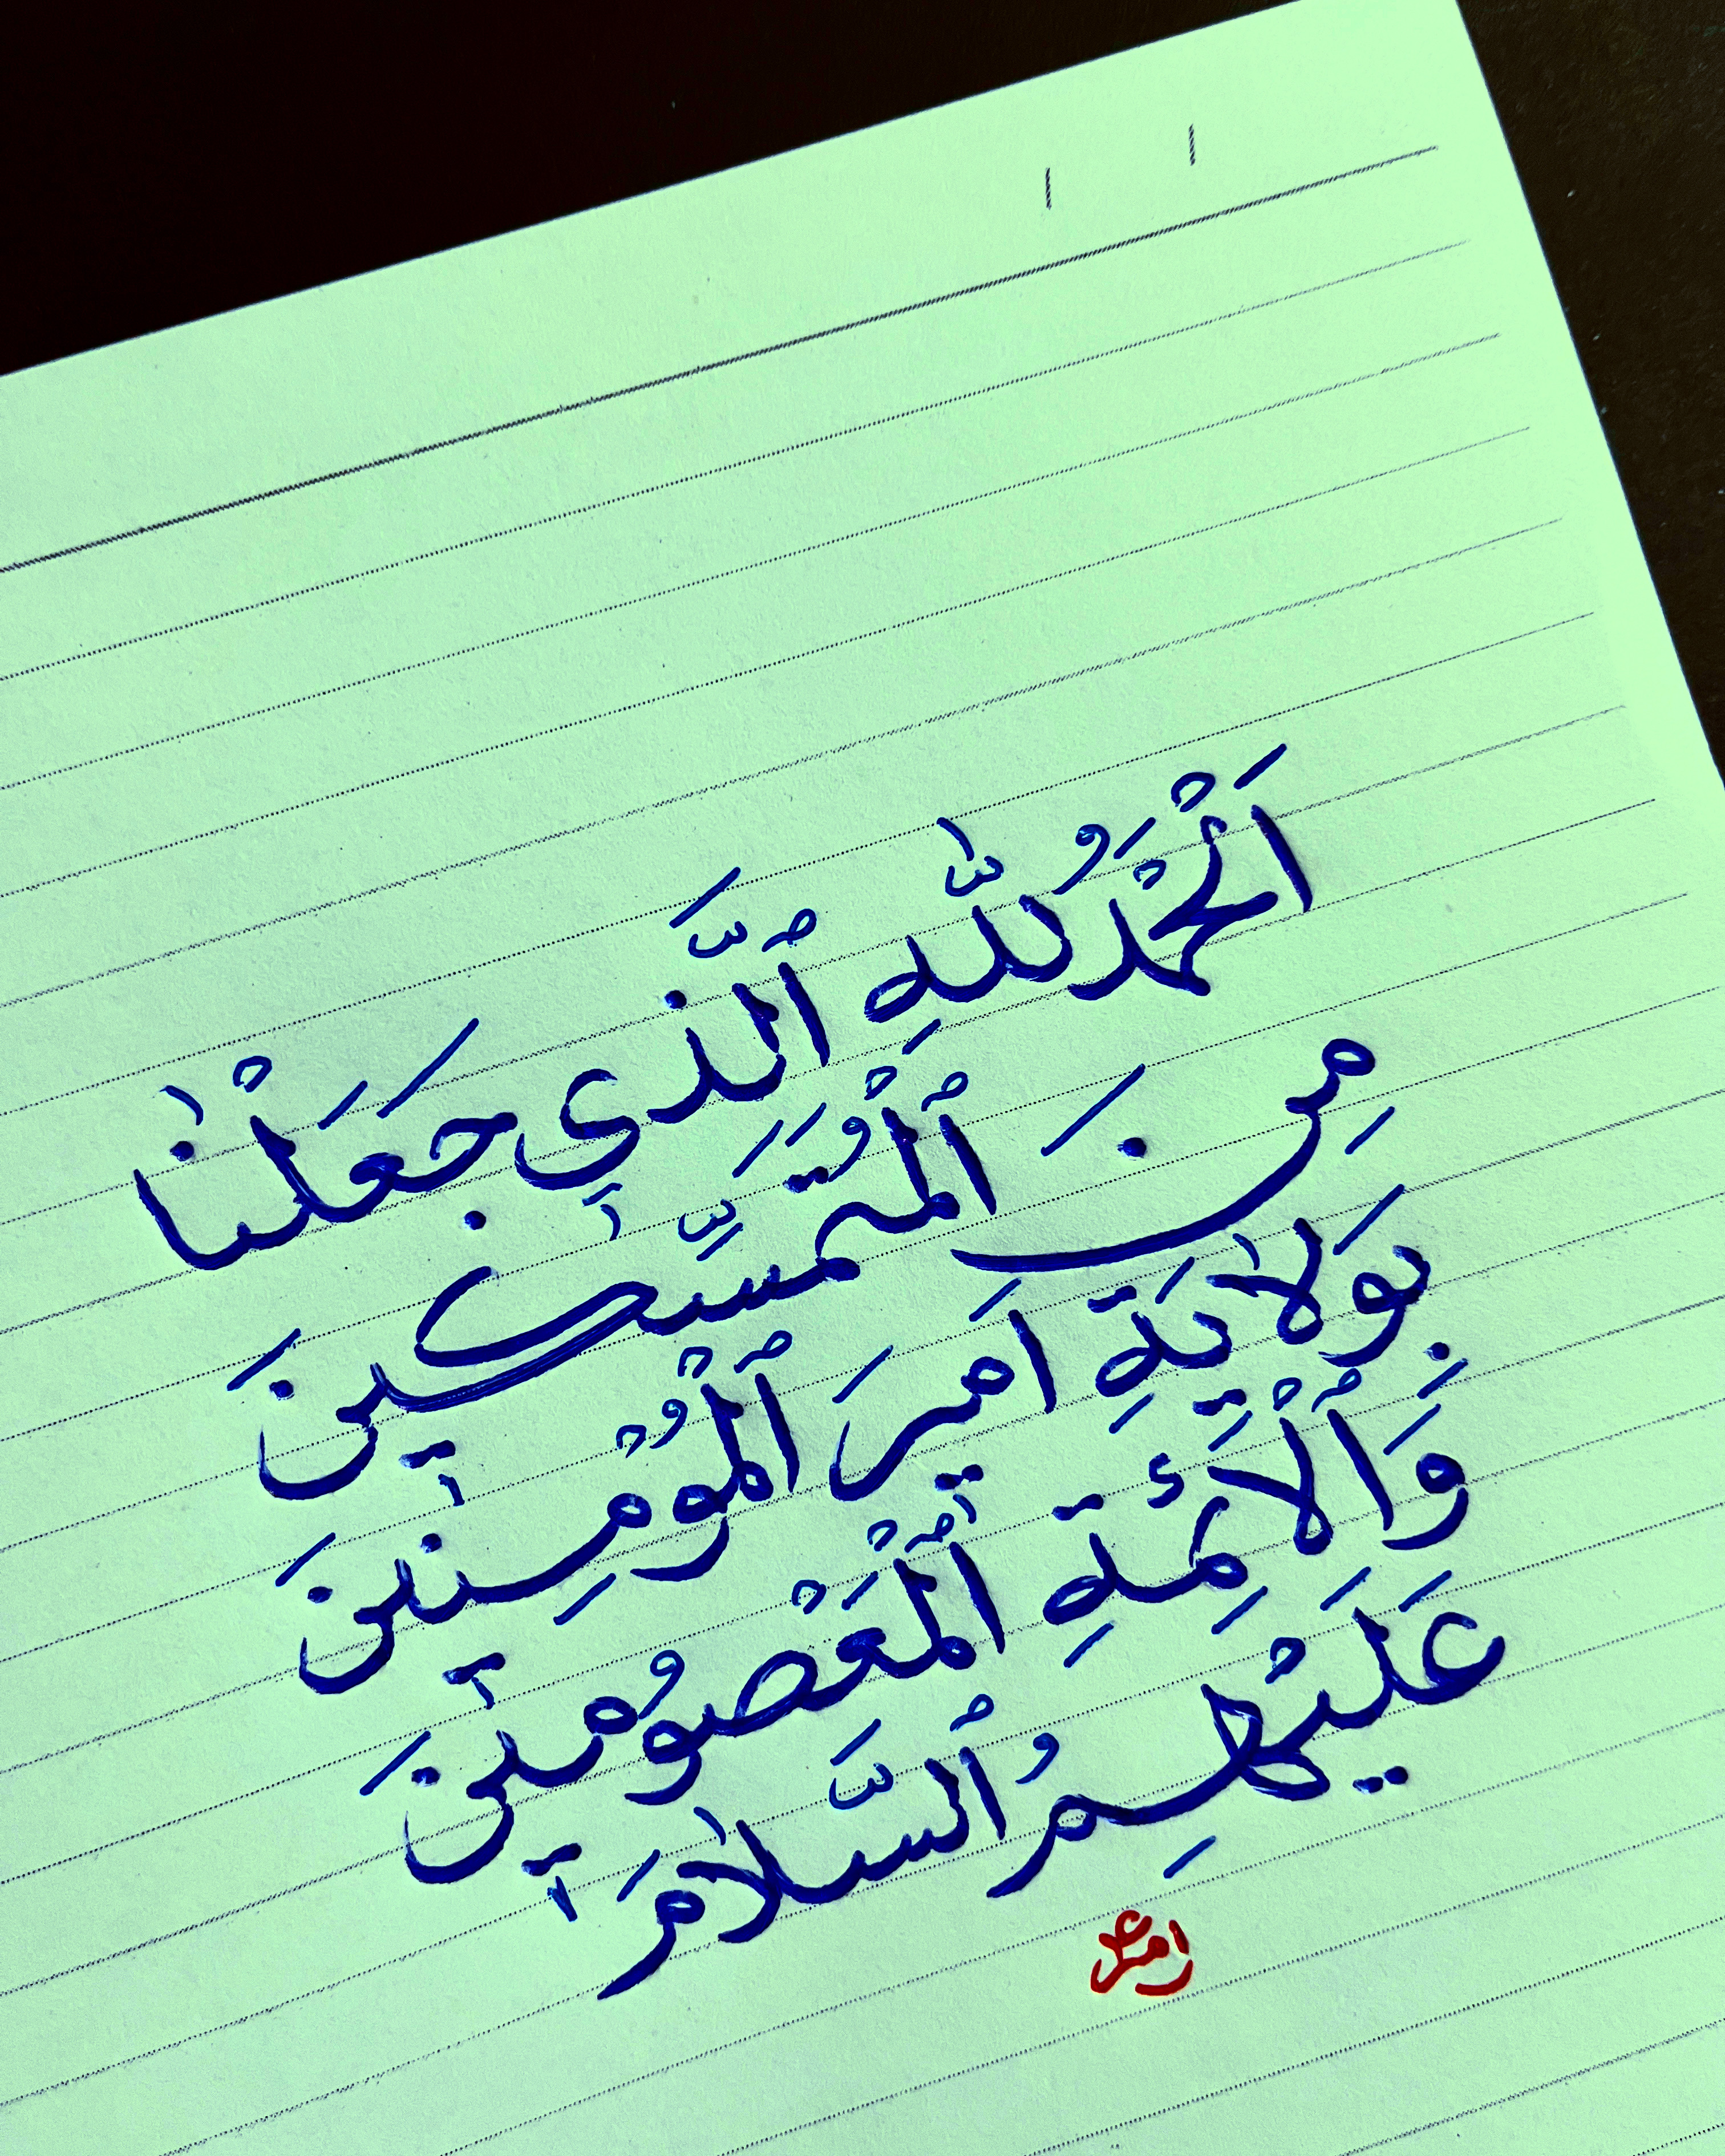 اَلْحَمْدُ لِلّٰهِ ٱلَّذِي جَعَلْنٰا
مِنَ ٱلْمُتَمَسِّكِينَ
بِوَلاٰيَةِ اَمِيرَ ٱلْمُؤْمِنِينَ
وَٱلْأَئِمَةِ ٱلْمَعْصُوْمِينَ
عَلَيْهِمُ ٱلسَّلاٰمَ